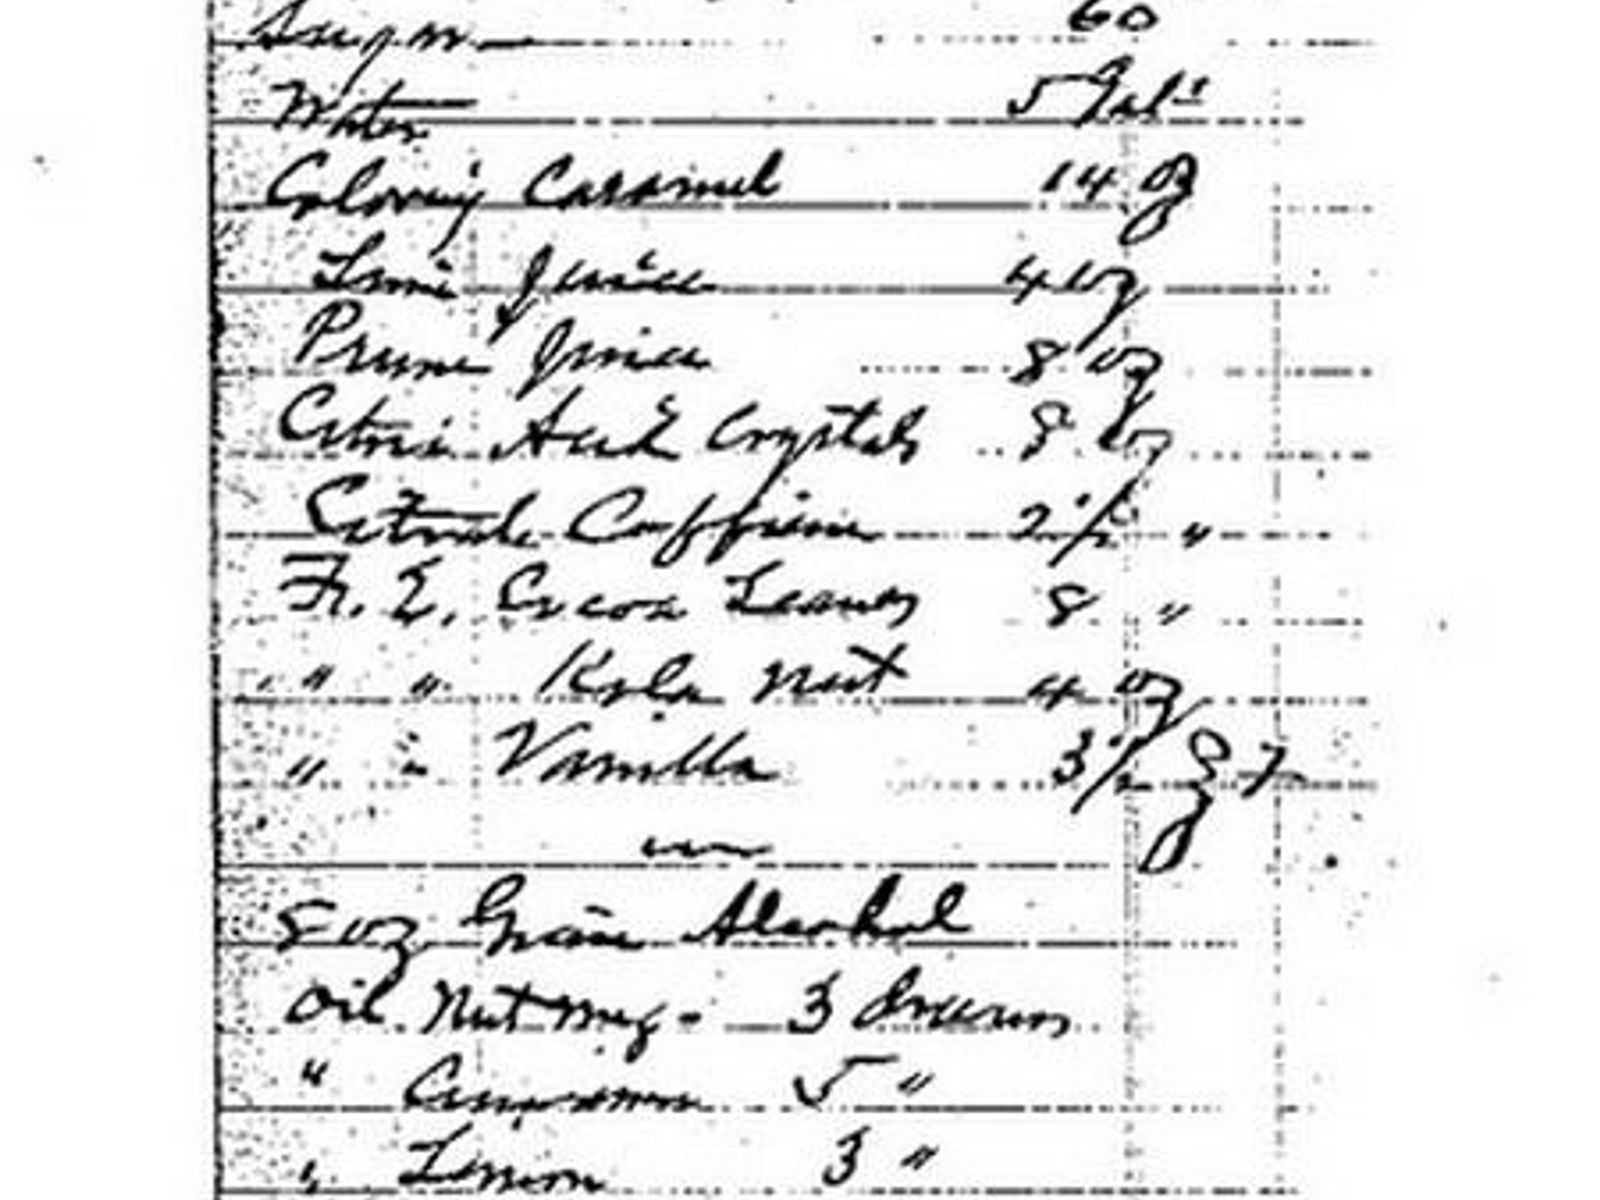 Sugar 60
Water 5 Gals
Coloring Caramel 14 oz
Lime Juice 4 oz
Prune Juice 8 oz
Citric Acid Crystals 8 oz
Citrate Caffeine 2 1/2 "
F. E. Cocoa Leaves 8 "
" " Kola Nut 4 oz
" " Vanilla 3 1/2
8 oz Grain Alcohol
Oil Nutmeg - 3 drams
" Cinnamon 5 "
" Lemon 3 "